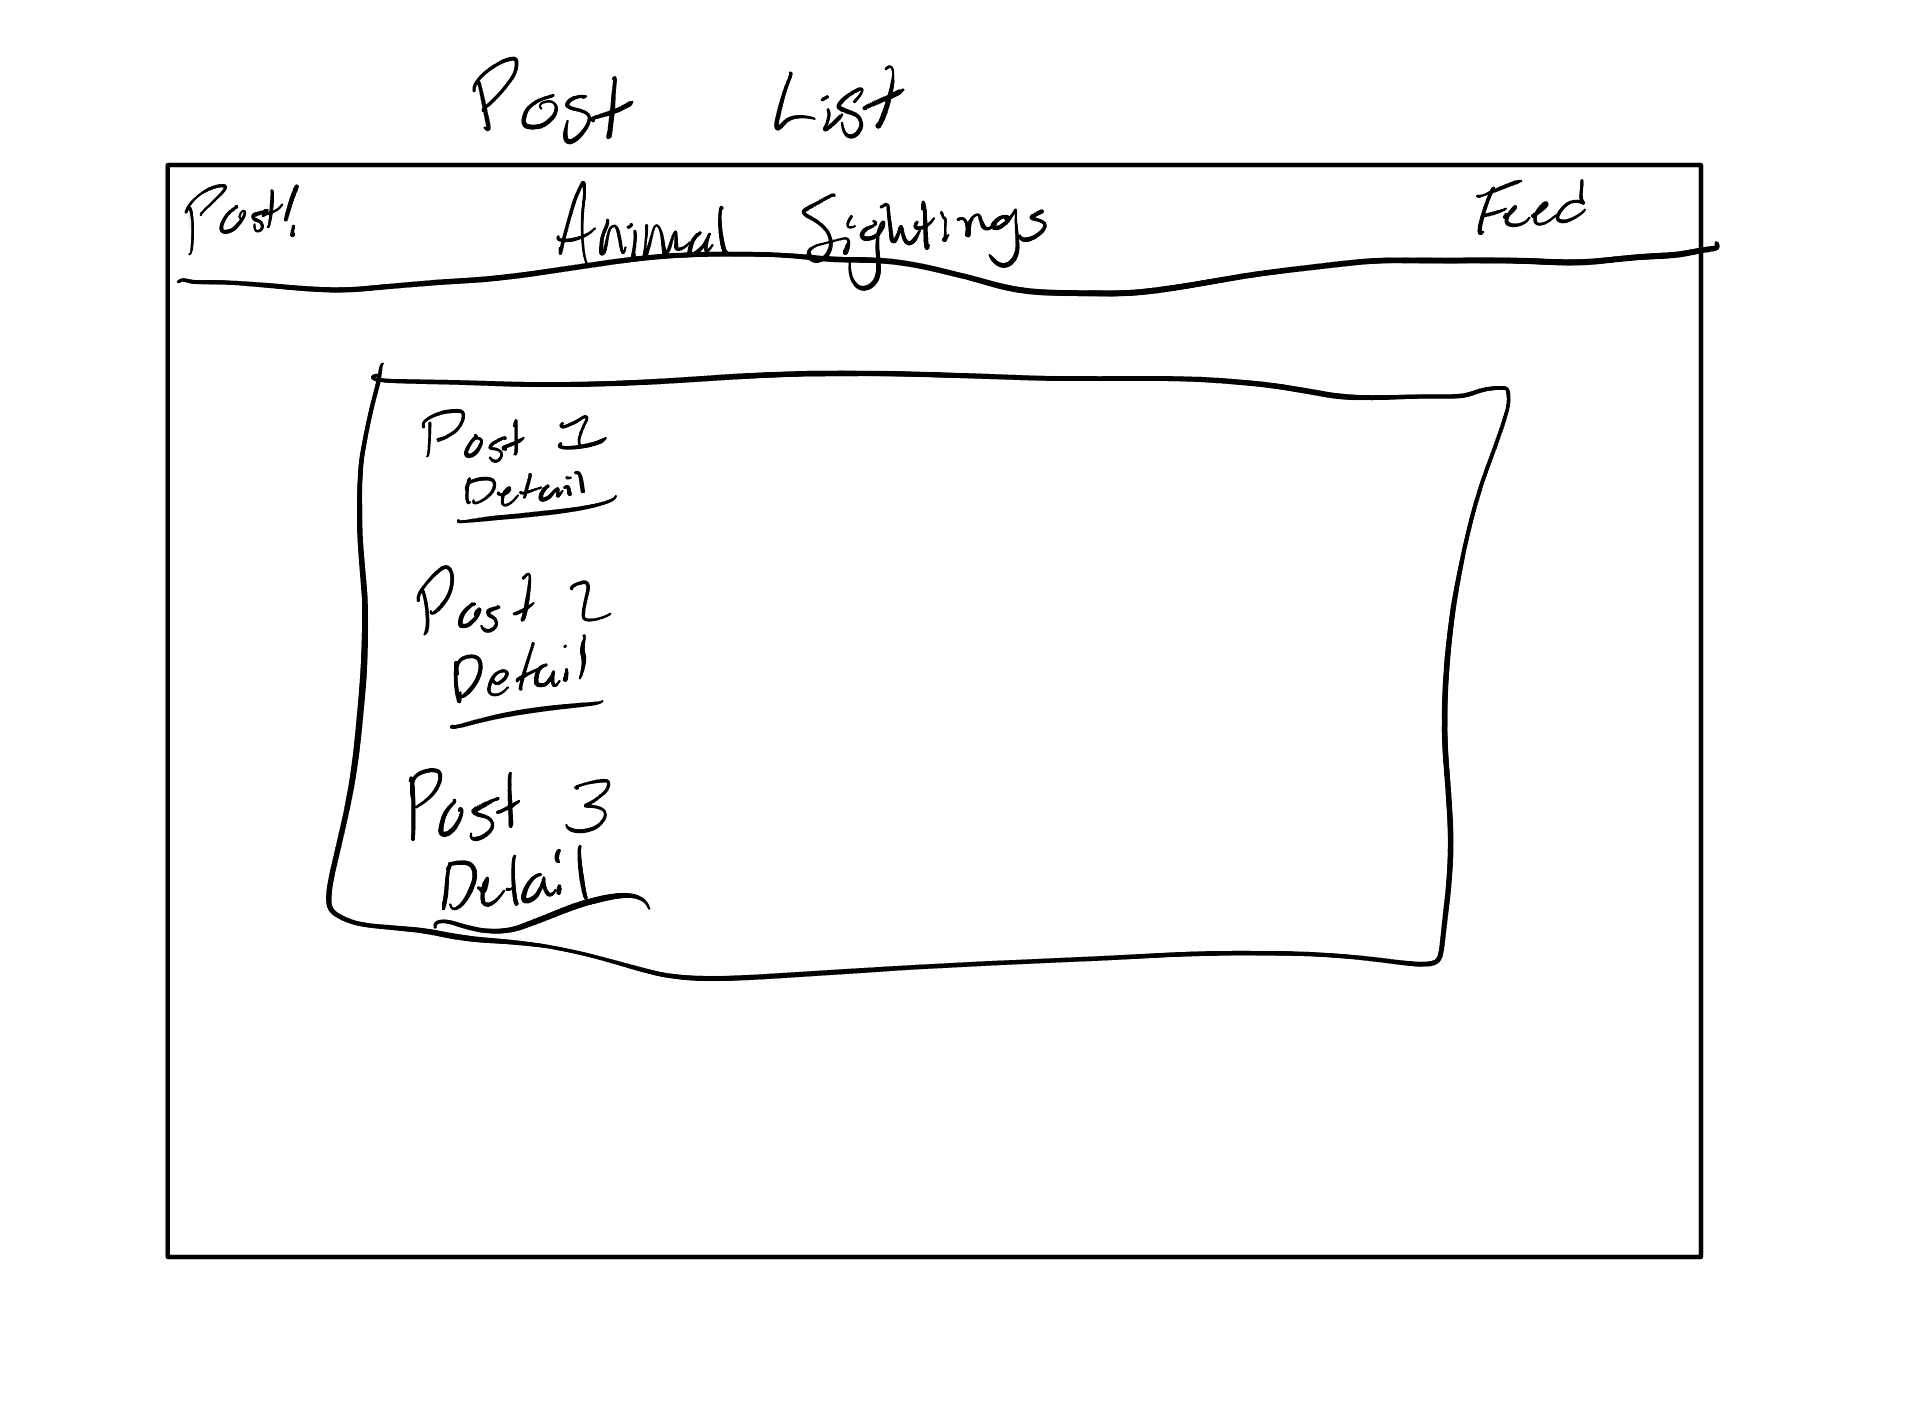 Post List
Post! Animal Sightings Feed
Post 1
Detail
Post 2
Detail
Post 3
Detail